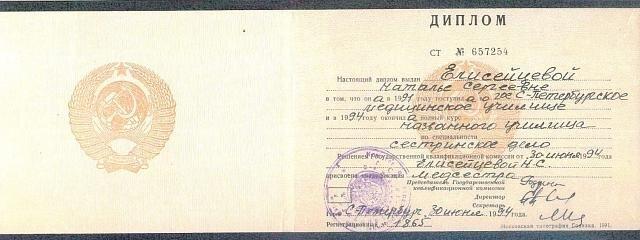 ДИПЛОМ
СТ № 657254
Настоящий диплом выдан Елисейцевой
Наталье Сергеевне
в том, что он а в 1991 году поступил а в гос. С-Петербургское
медицинское училище
и в 1994 году окончил а полный курс
названного училища
по специальности
сестринское дело
Решением Государственной квалификационной комиссии от 30 июня 1994
Елисейцевой Н.С.
присвоена квалификация
медсестра
Председатель Государственной
квалификационной комиссии
Директор
Секретарь
Город С-Петербург 30 июня 1994 года
Регистрационный № 1865
Московская типография Гознака. 1991.